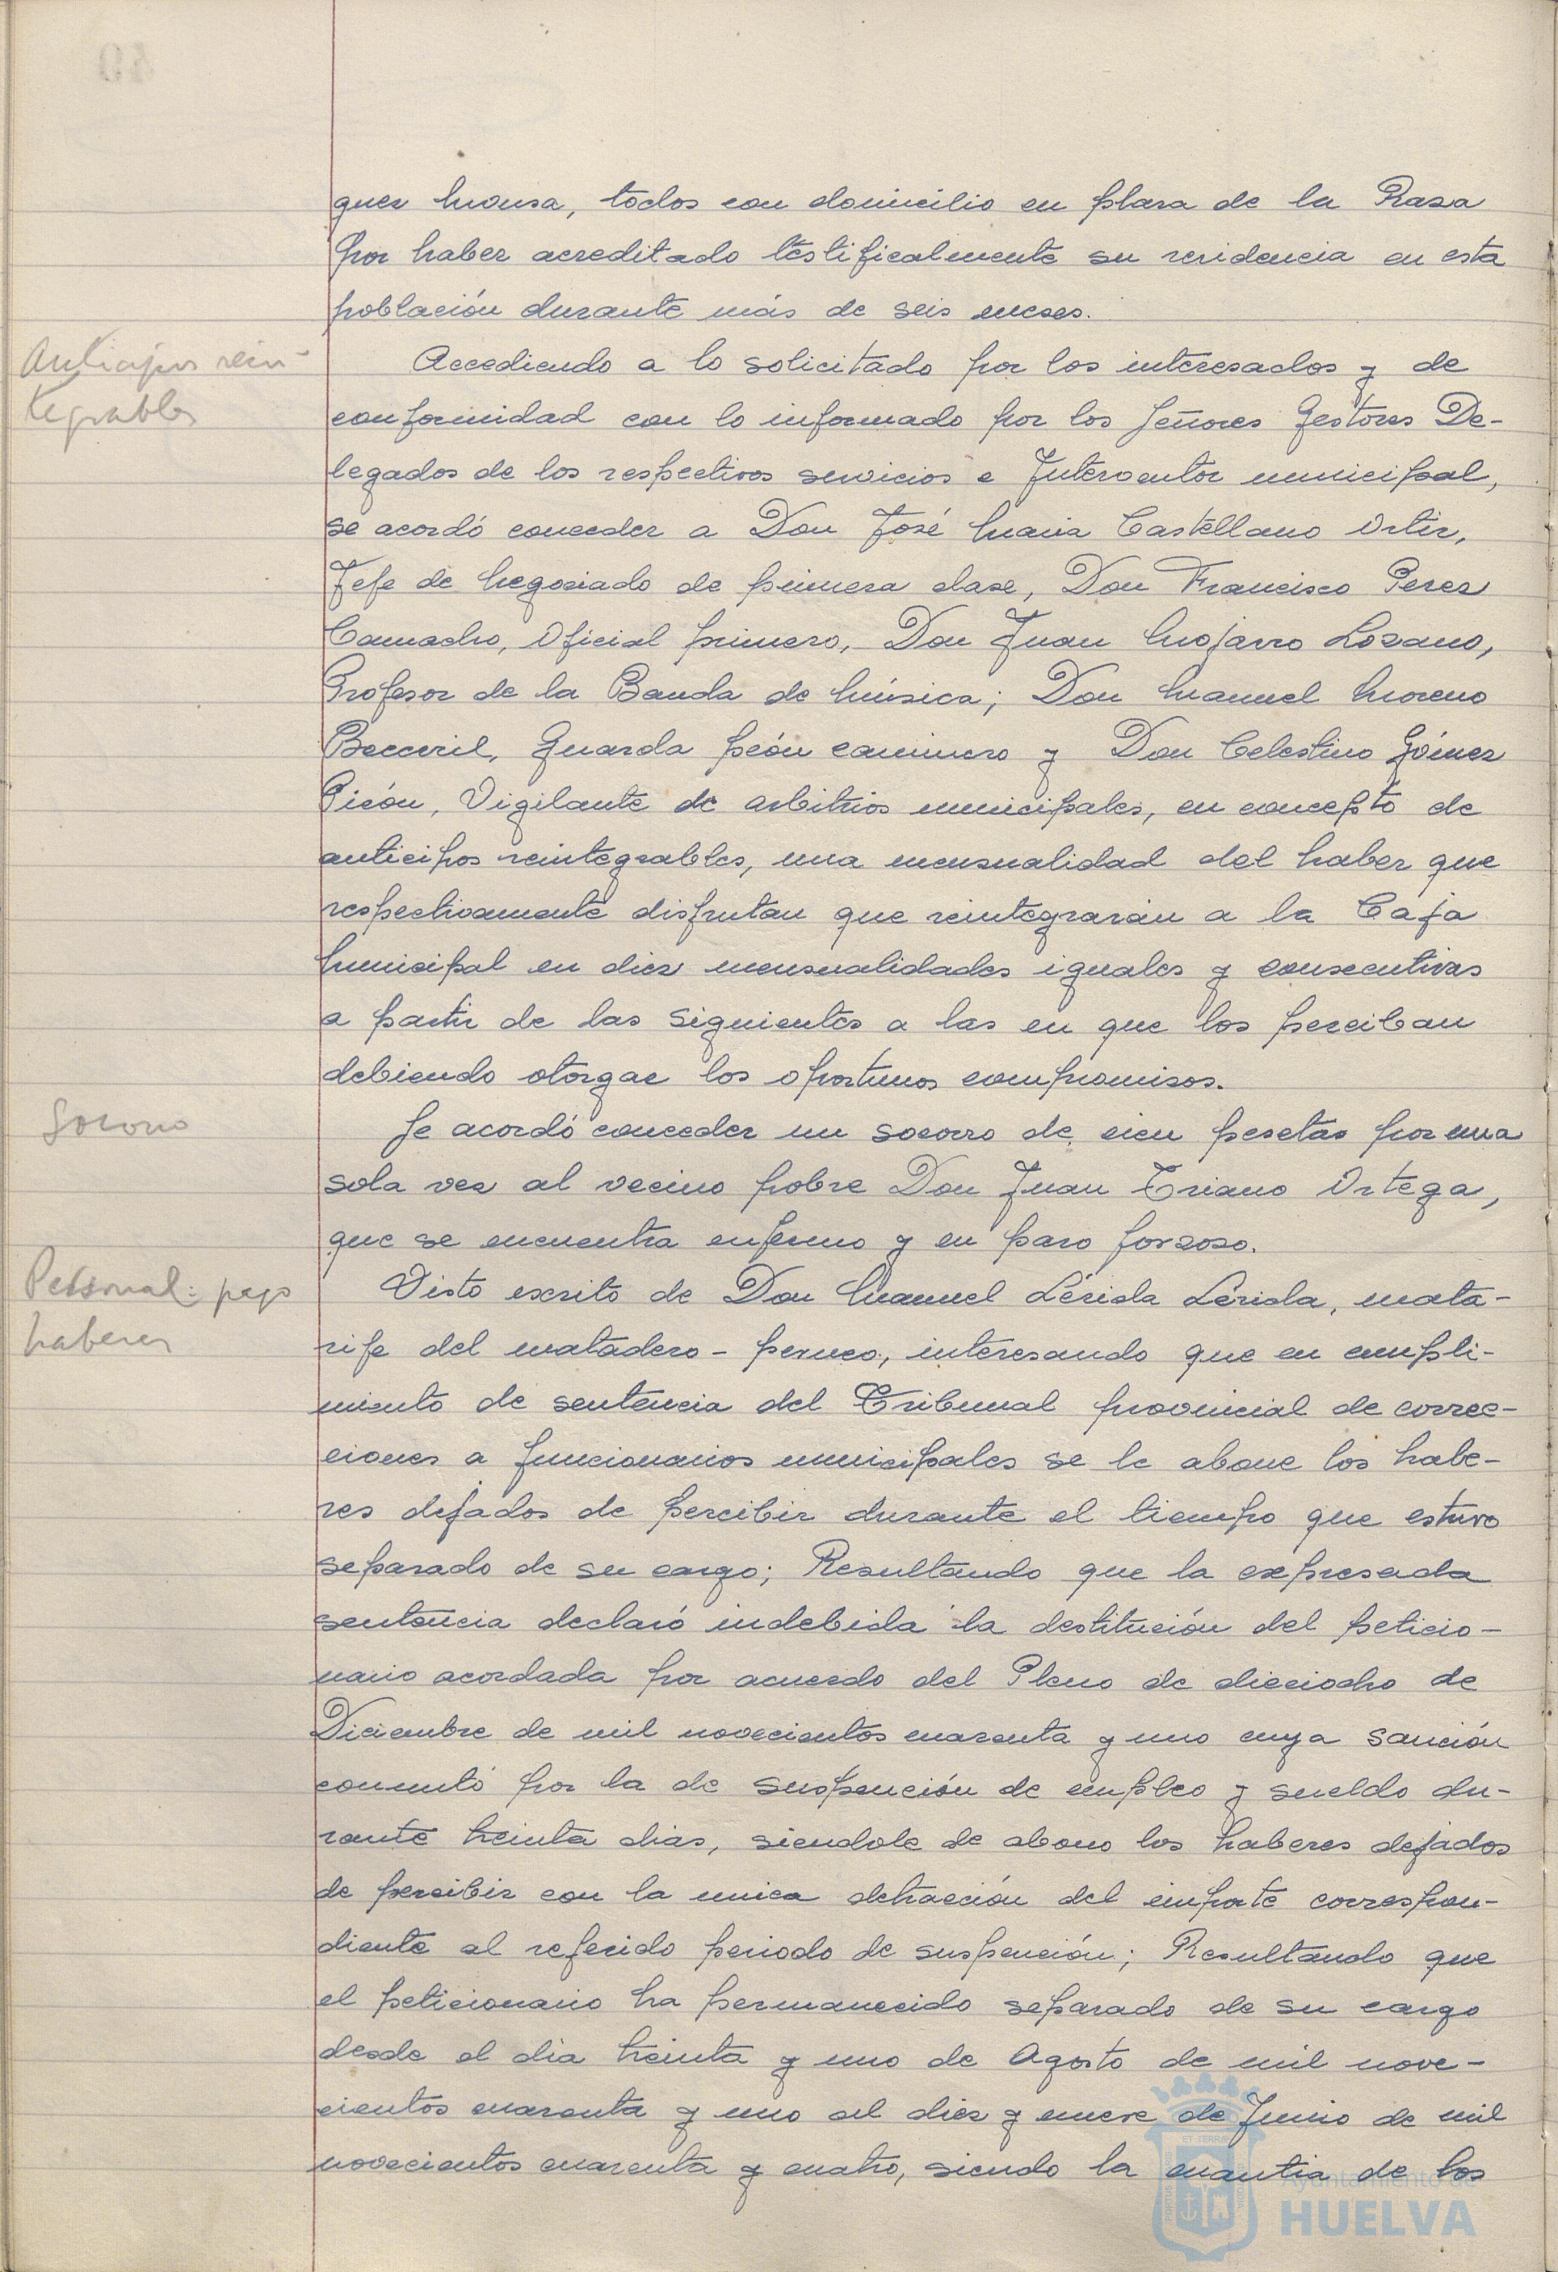 quez Monsa, todos con domicilio en plaza de la Raza
por haber acreditado testificalmente su residencia en esta
población durante más de seis meses.
Anticipos rein-
tegrables
Accediendo a lo solicitado por los interesados y de
conformidad con lo informado por los Señores Gestores De-
legados de los respectivos servicios e Interventor municipal,
se acordó conceder a Don José Maria Castellano Ortiz,
Jefe de Negociado de primera clase, Don Francisco Perez
Camacho, Oficial primero, Don Juan Mojarro Lozano,
Profesor de la Banda de Música; Don Manuel Moreno
Becceril, Guarda peón caminero y Don Celestino Gómez
Picón, Vigilante de arbitrios municipales, en concepto de
anticipos reintegrables, una mensualidad del haber que
respectivamente disfrutan que reintegrarán a la Caja
Municipal en diez mensualidades iguales y consecutivas
a partir de las siguientes a las en que los perciban
debiendo otorgar los oportunos compromisos.
Socorro
Se acordó conceder un socorro de cien pesetas por una
sola vez al vecino pobre Don Juan Triano Ortega,
que se encuentra enfermo y en paro forzoso.
Personal: pago
haberes
Visto escrito de Don Manuel Lérida Lérida, mata-
rife del matadero - perneo, interesando que en cumpli-
miento de sentencia del Tribunal provincial de correc-
ciones a funcionarios municipales se le abone los habe-
res dejados de percibir durante el tiempo que estuvo
separado de su cargo; Resultando que la expresada
sentencia declaró indebida la destitución del peticio-
nario acordada por acuerdo del Pleno de dieciocho de
Diciembre de mil novecientos cuarenta y uno cuya sanción
conmutó por la de suspención de empleo y sueldo du-
rante treinta dias, siendole de abono los haberes dejados
de percibir con la unica detracción del importe correspon-
diente al referido periodo de suspención; Resultando que
el peticionario ha permanecido separado de su cargo
desde el dia treinta y uno de Agosto de mil nove-
cientos cuarenta y uno al diez y nueve de Junio de mil
novecientos cuarenta y cuatro, siendo la cuantia de los
Ayuntamiento de
HUELVA